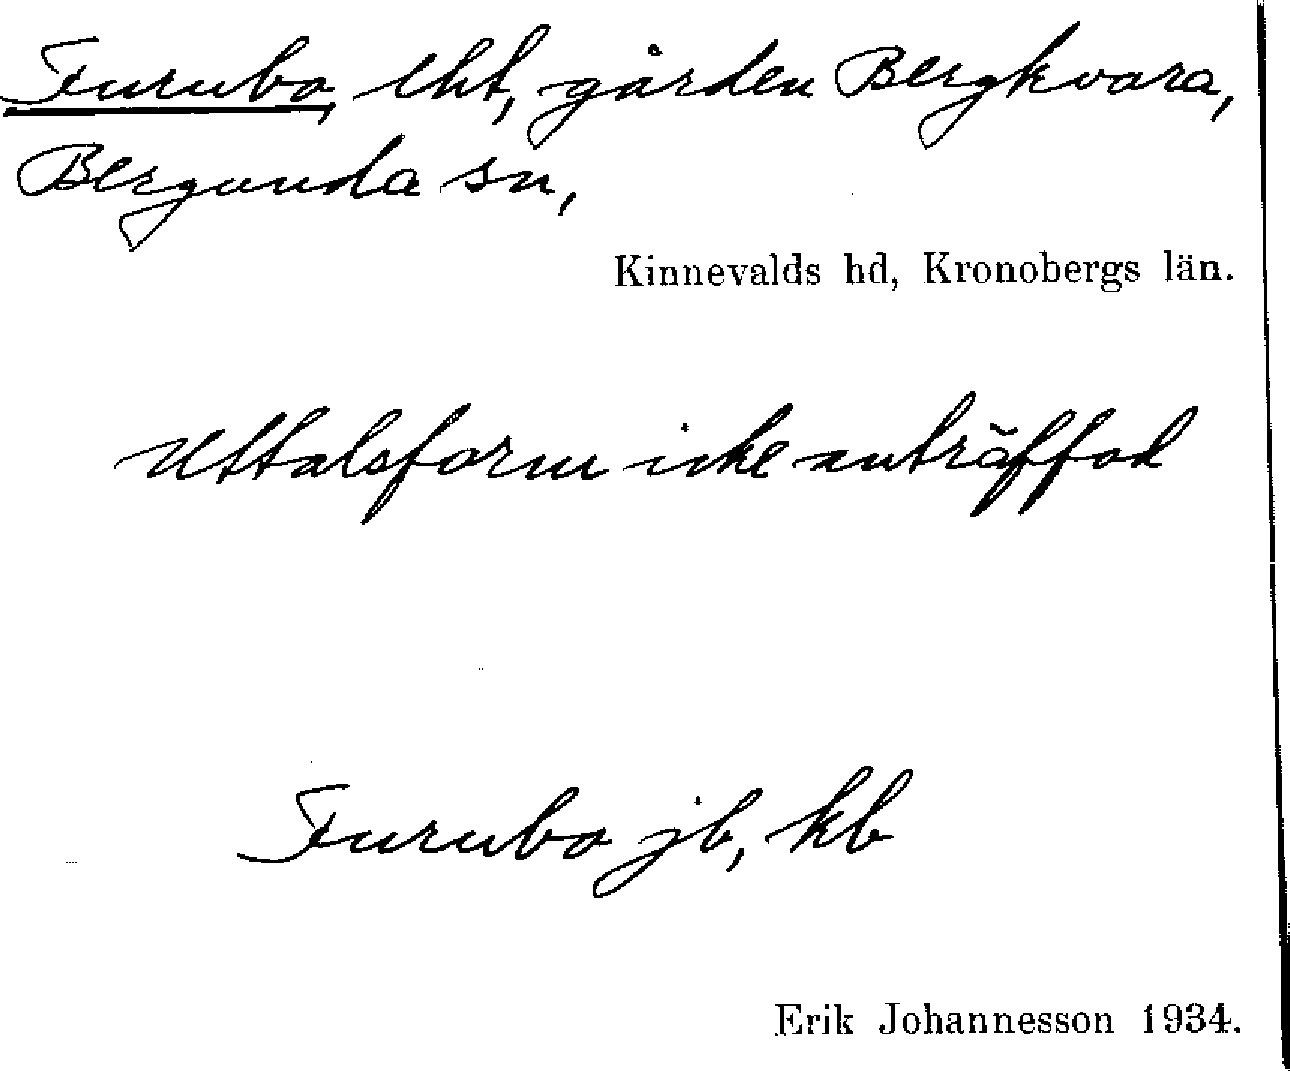 Furubo, lht, gården Bergkvara,
Bergunda sn,
Kinnevalds hd, Kronobergs län.
Uttalsform icke anträffad
Furubo jb, kb
Erik Johannesson 1934.